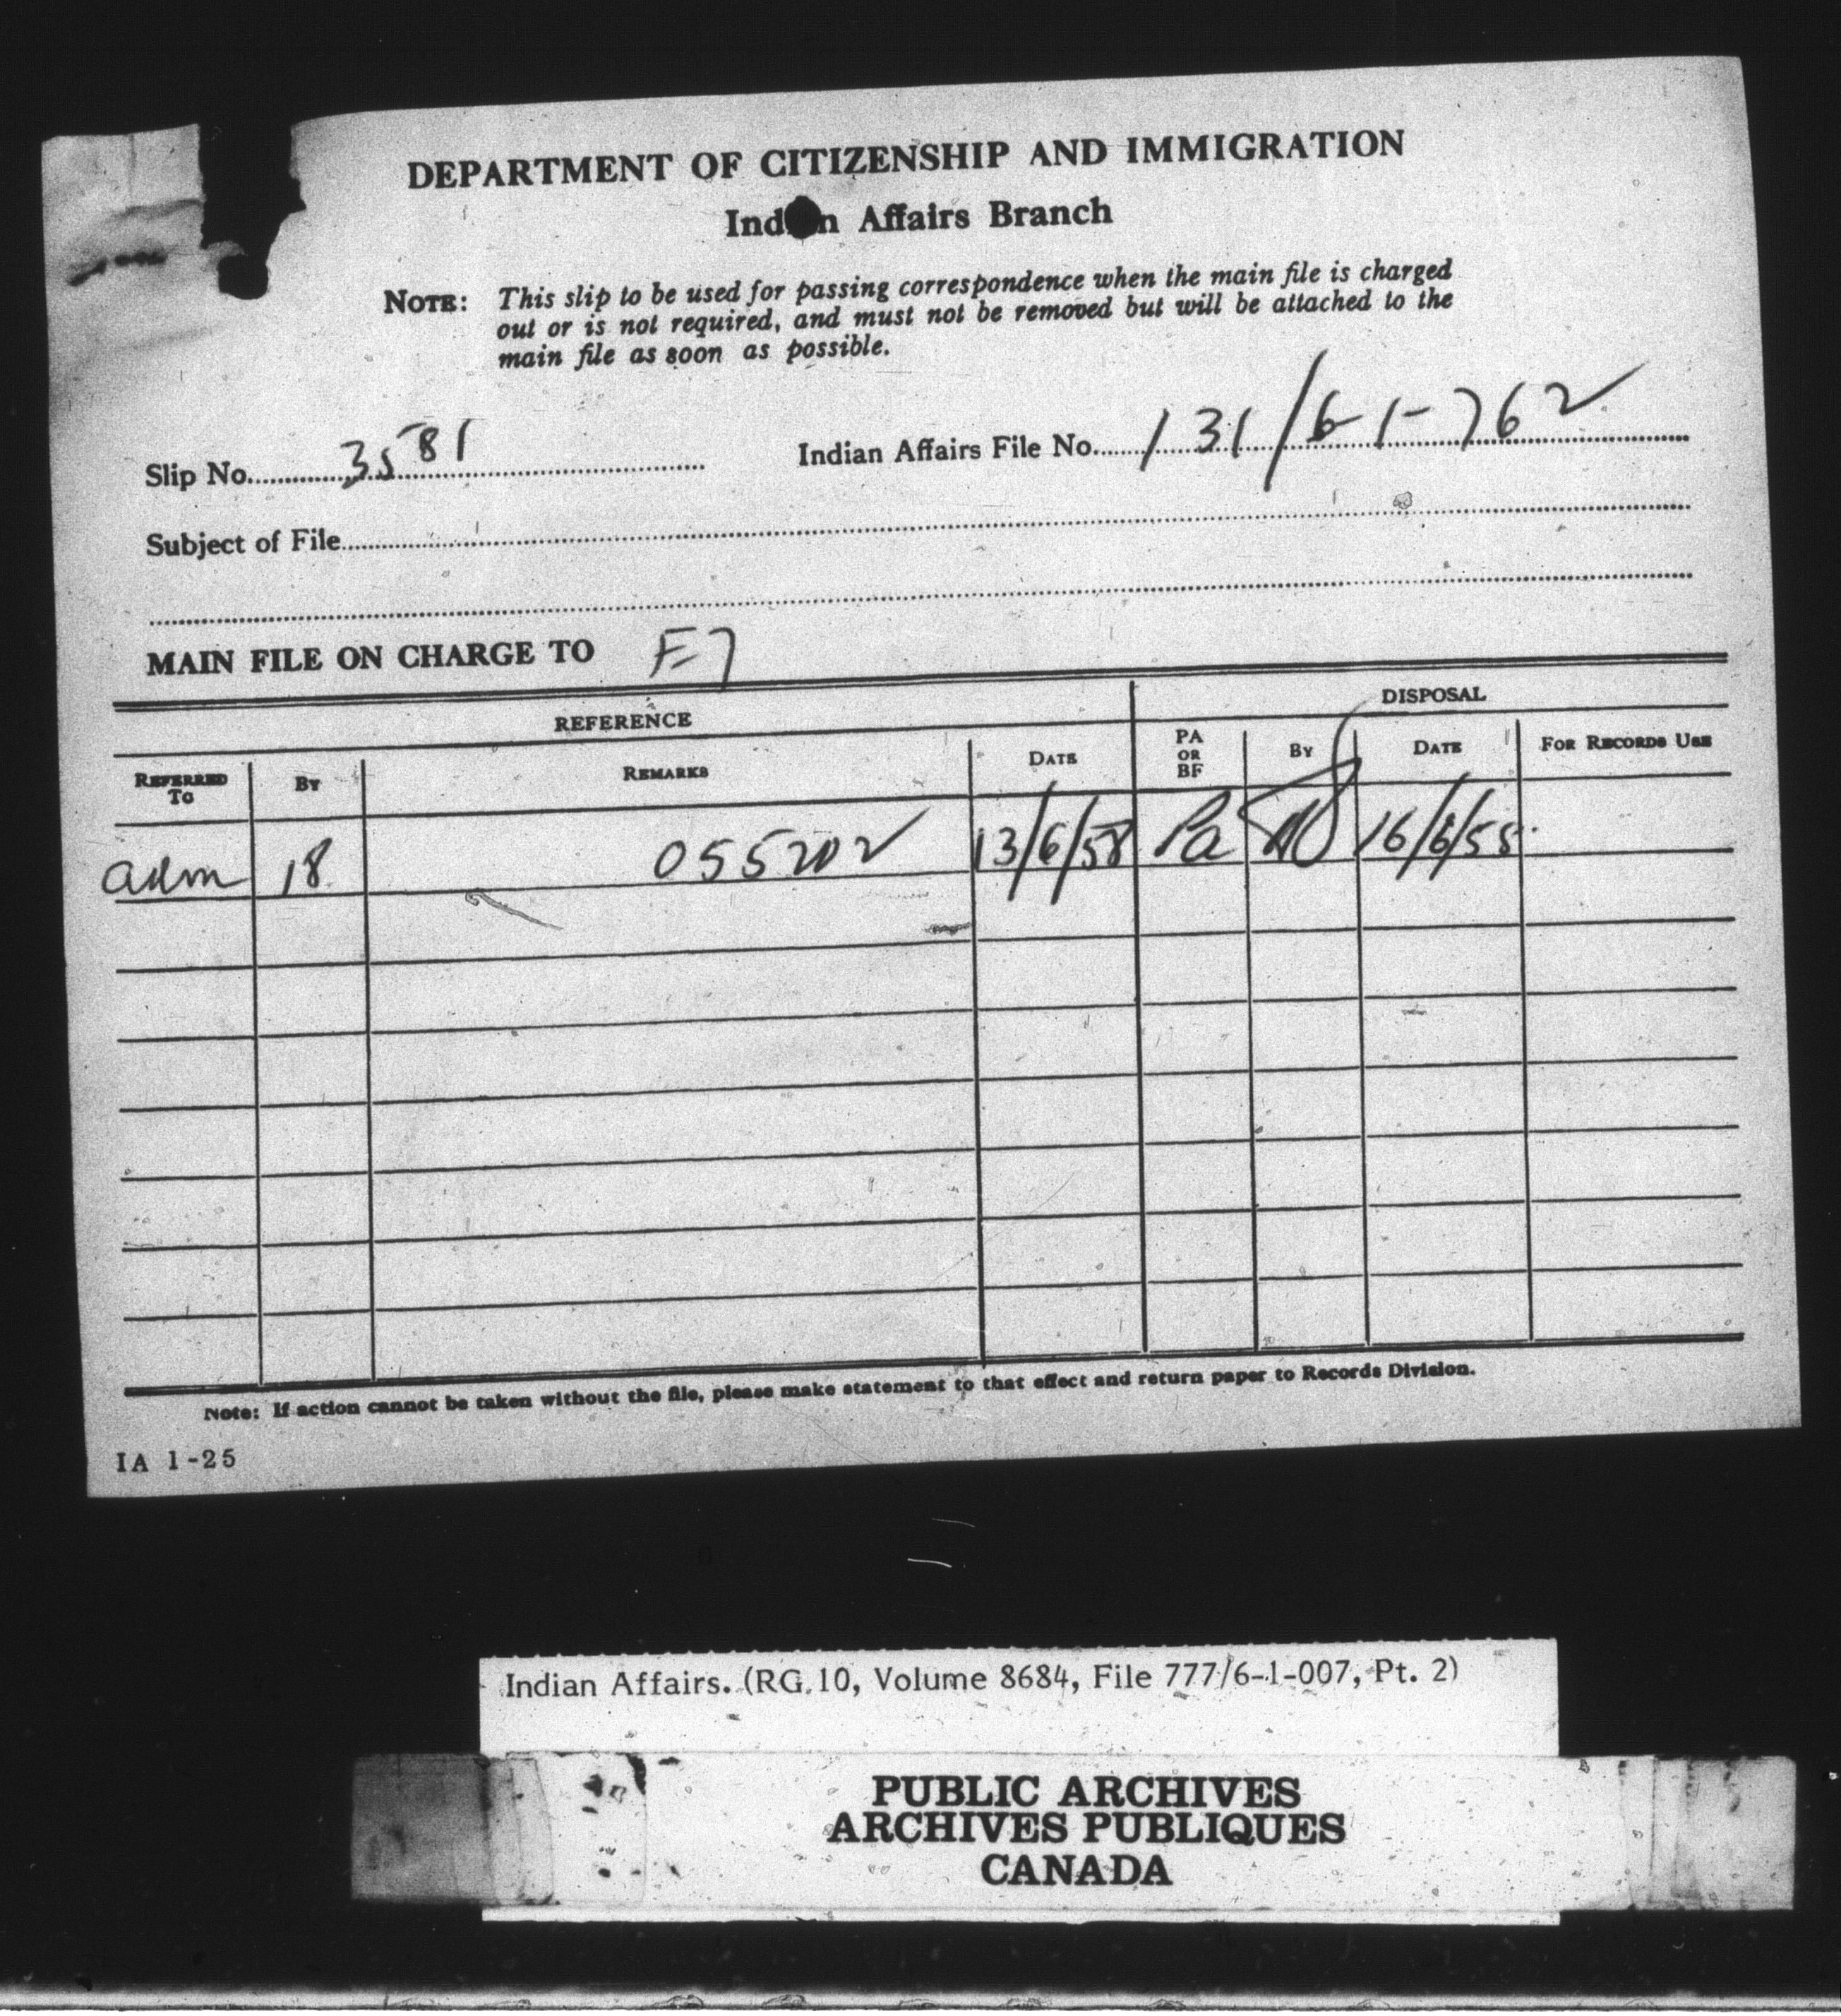 DEPARTMENT OF CITIZENSHIP AND IMMIGRATION
Ind n Affairs Branch
NOTE: This slip to be used for passing correspondence when the main file is charged
out or is not required, and must not be removed but will be attached to the
main file as soon as possible.
Slip No. 3581 Indian Affairs File No. 131/6-1-762
Subject of File
MAIN FILE ON CHARGE TO F-7
REFERENCE DISPOSAL
REFERRED TO BY REMARKS DATE PA OR BF BY DATE FOR RECORDS USE
adm 18 055202 13/6/58 Pa 16/6/58
Note: If action cannot be taken without the file, please make statement to that effect and return paper to Records Division.
IA 1-25
Indian Affairs. (RG 10, Volume 8684, File 777/6-1-007, Pt. 2)
PUBLIC ARCHIVES
ARCHIVES PUBLIQUES
CANADA